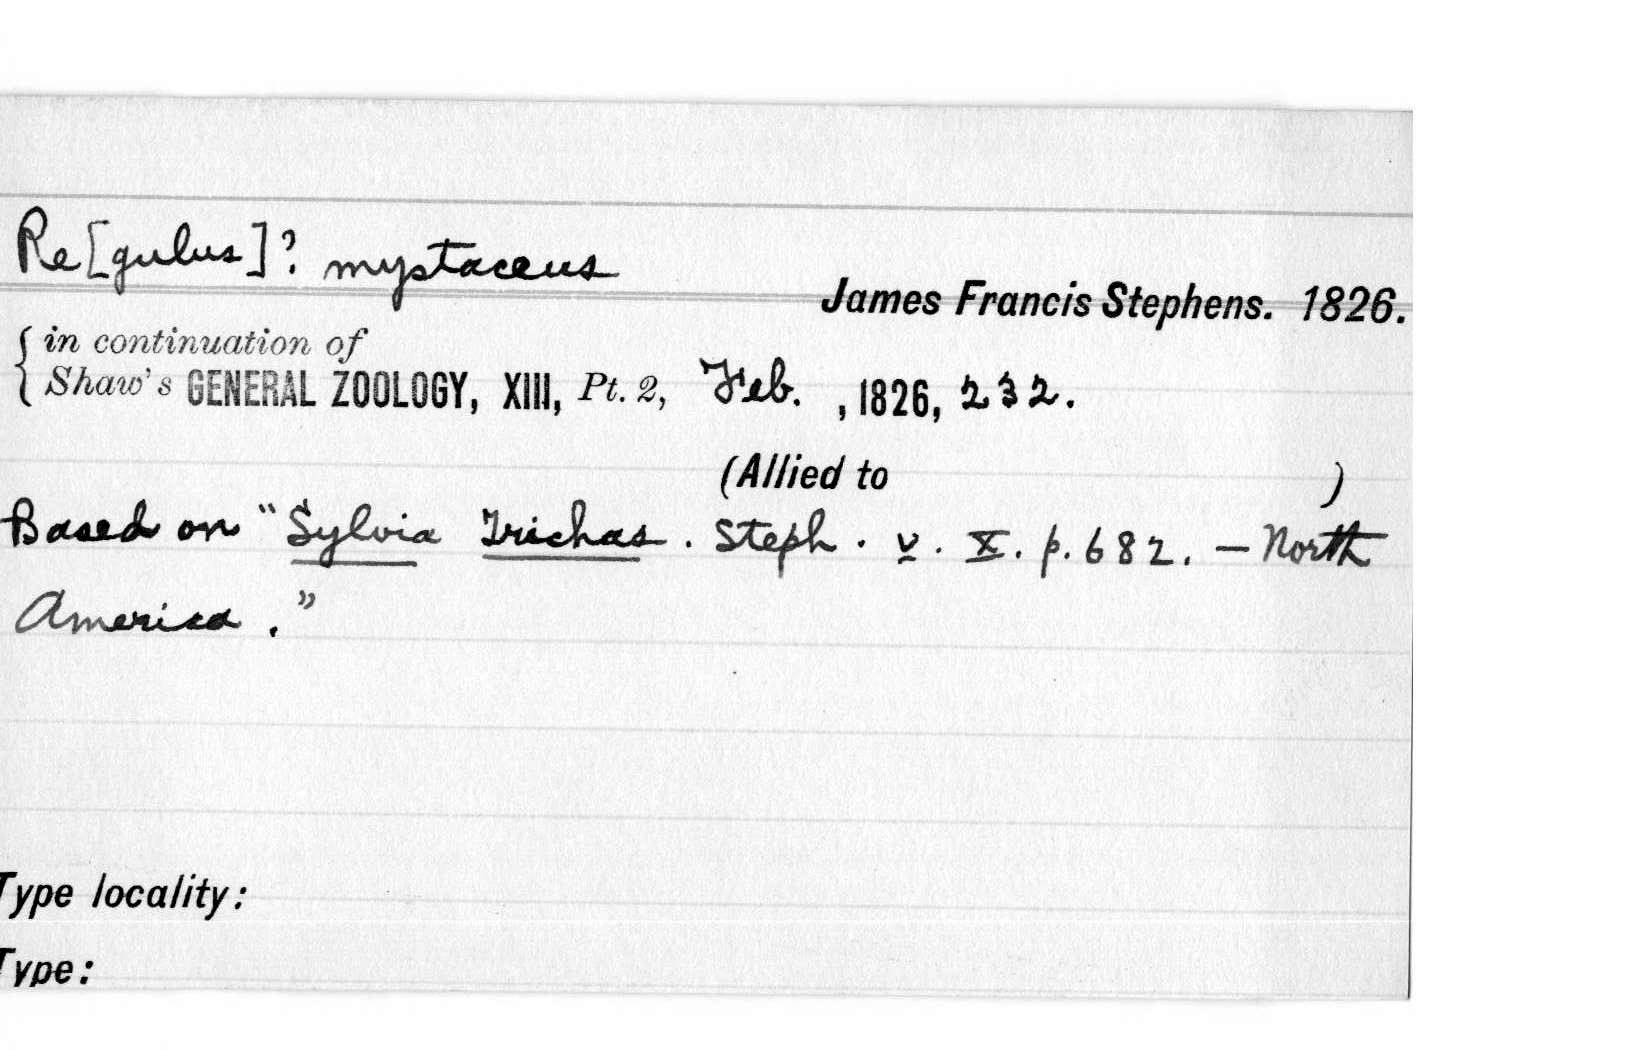 Re[gulus]? mystaceus
James Francis Stephens. 1826.
in continuation of
Shaw's GENERAL ZOOLOGY, XIII, Pt. 2, Feb. , 1826, 232.
(Allied to )
Based on "Sylvia Trichas. Steph. v. X. p. 682. — North
America."
Type locality:
Type: